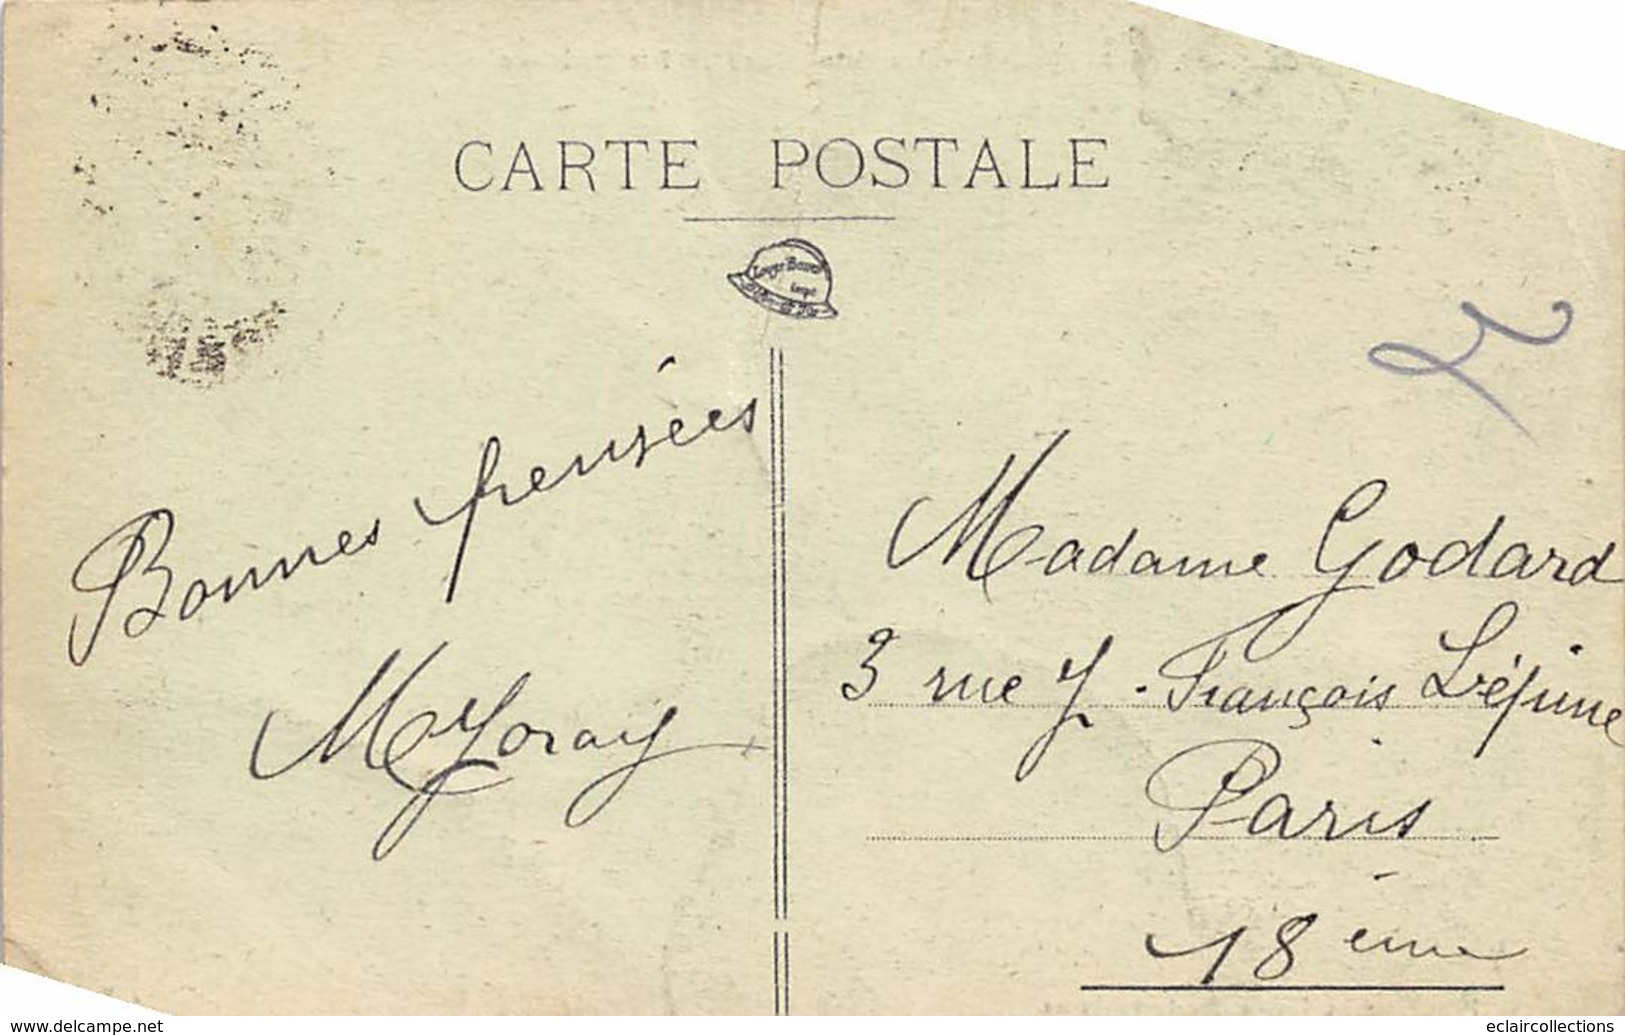 CARTE POSTALE
Bonnes pensées
Madame Godard
3 rue J-François Lépine
Paris
18 ème
www.delcampe.net
eclaircollections